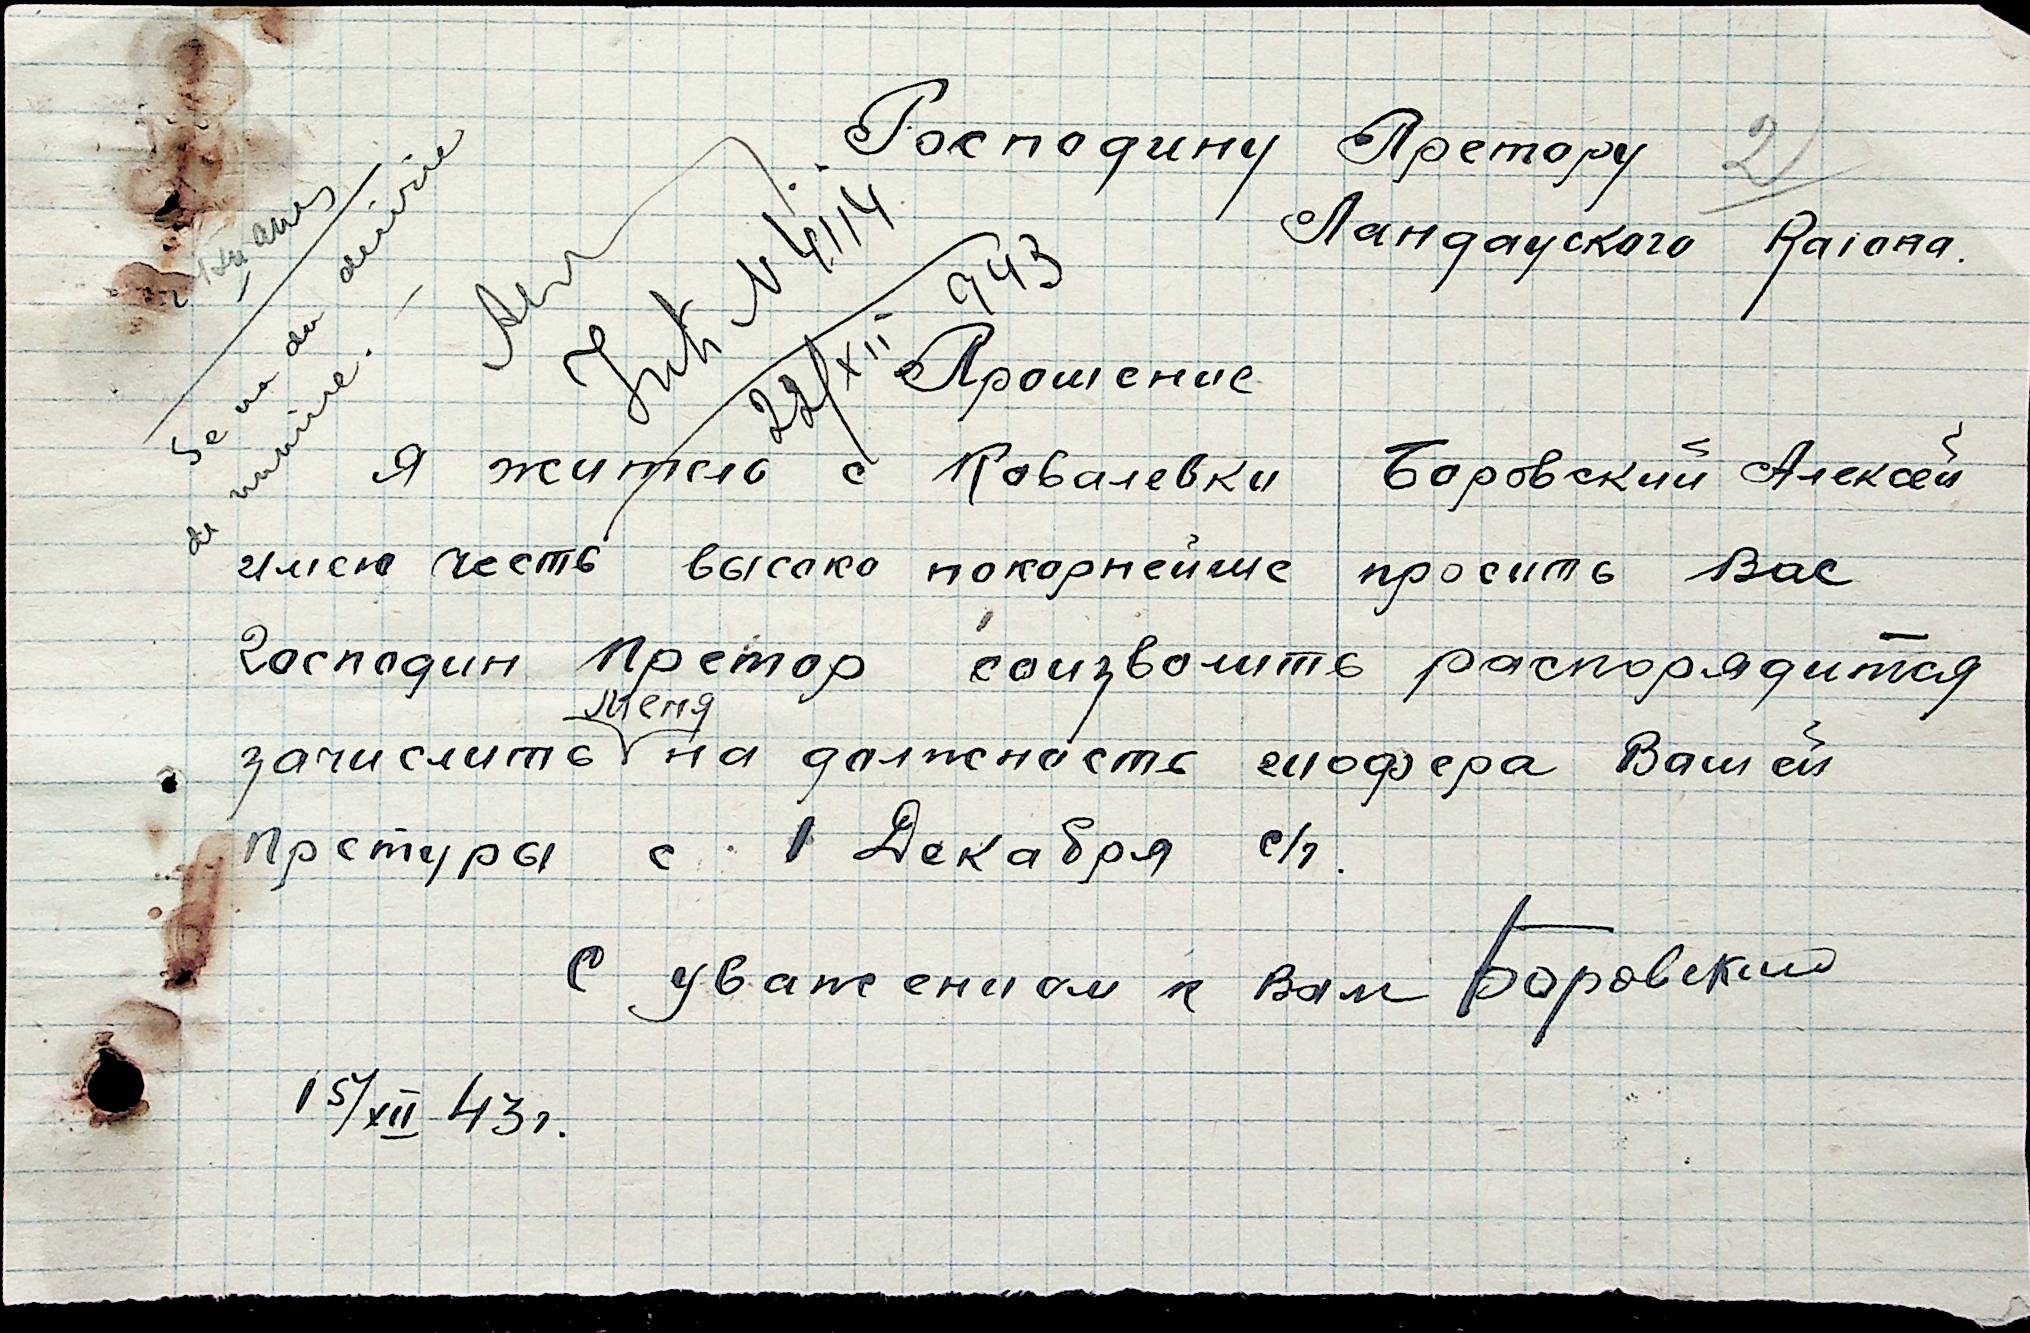 Господину Претору 2
Ландауского Раіона.
Int. N 4114
22/XII 943
Se va da decizie
de numire. —
Прошение
Я житель с Ковалевки Боровский Алексей
имею честь высоко покорнейше просить Вас
Господин Претор соизволить распорядится
меня
зачислить на должность шофера Вашей
Претуры с 1 Декабря с/г.
С уважением к Вам Боровский
15/XII 43г.